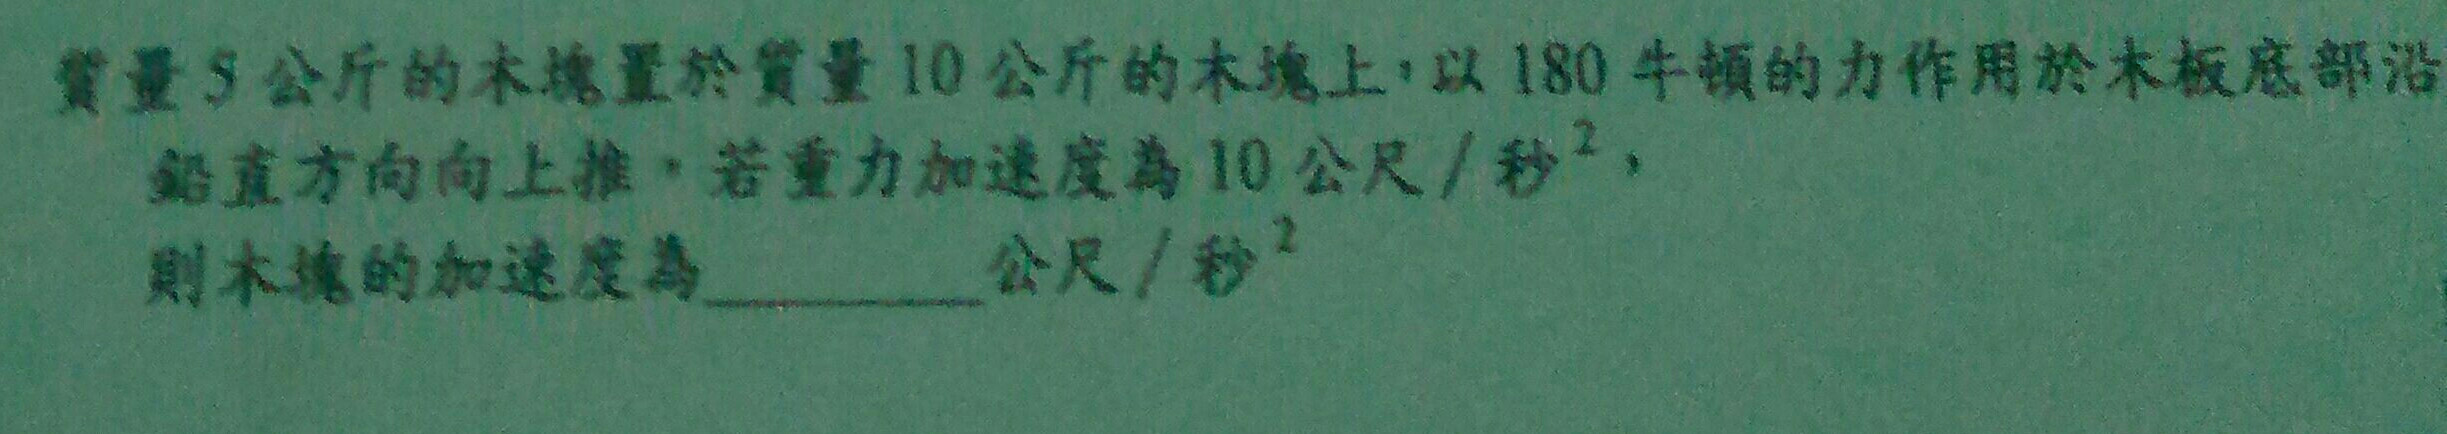 質量5公斤的木塊置於質量10公斤的木塊上,以180牛頓的力作用於木板底部沿
鉛直方向向上推。若重力加速度為10公尺/秒²,
則木塊的加速度為________公尺/秒²